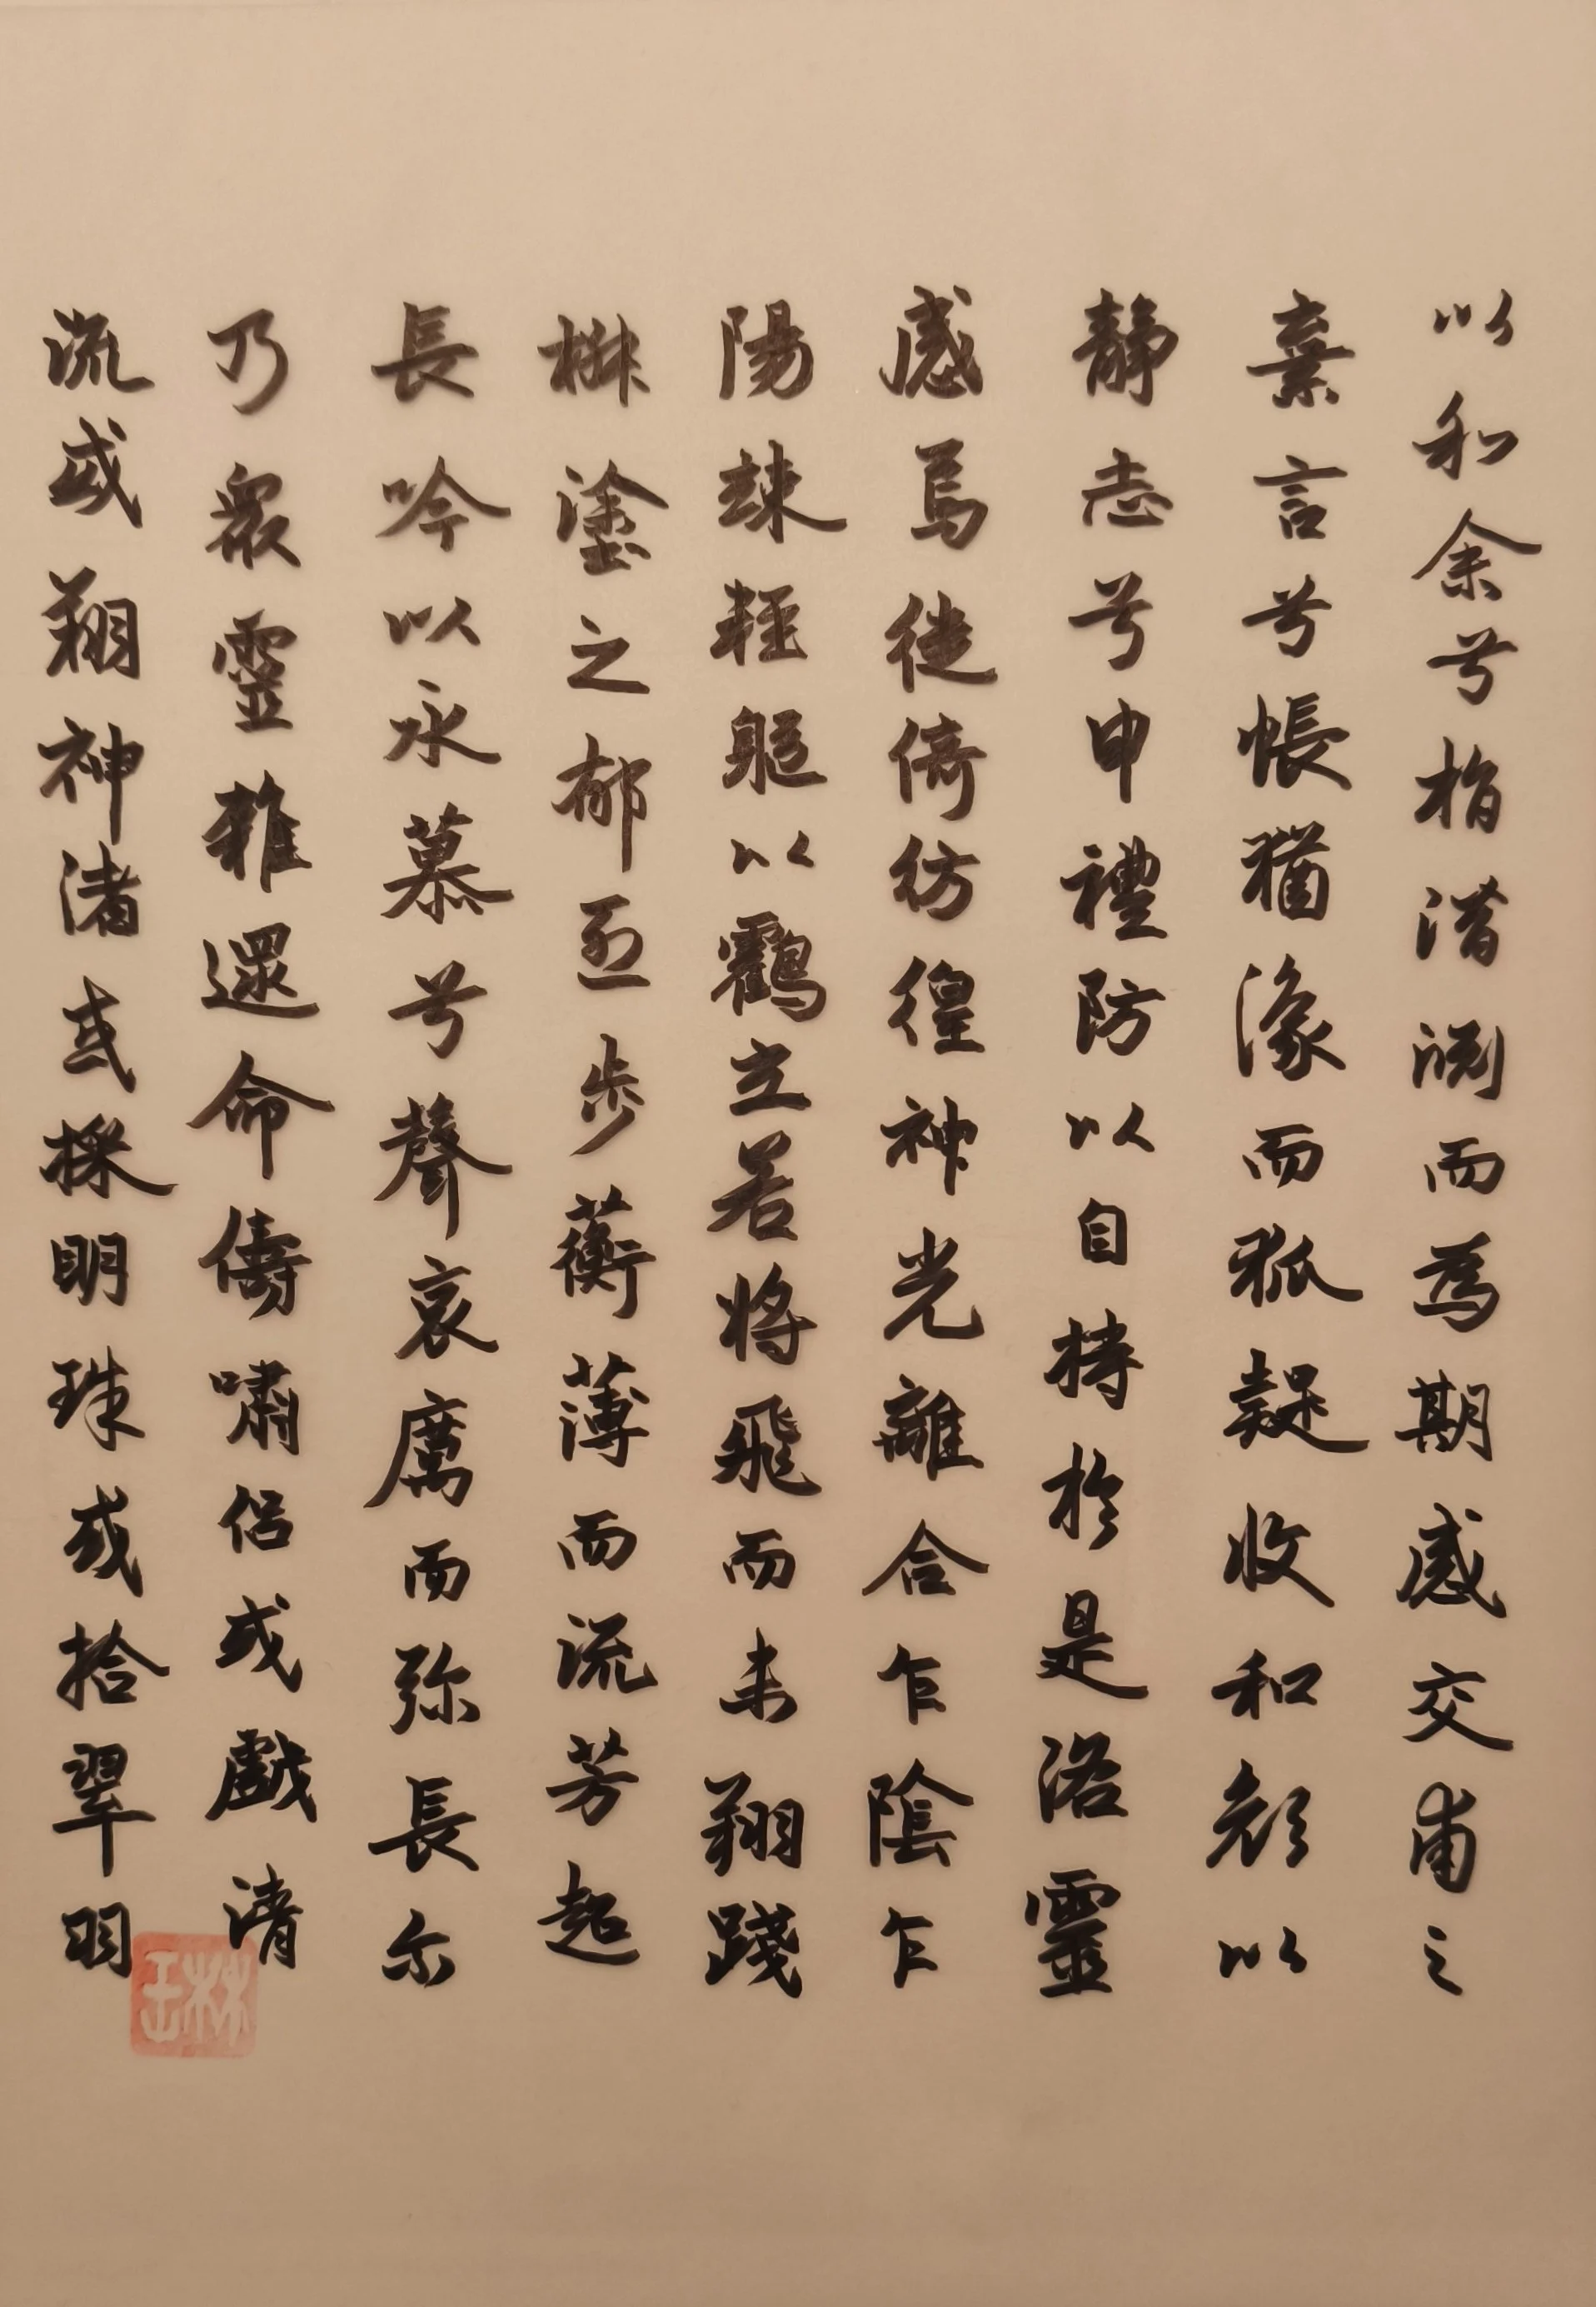 以和余兮指潛渕而為期感交甫之
棄言兮悵猶豫而狐疑收和顏以
静志兮申禮防以自持於是洛靈
感焉徙倚彷徨神光離合乍陰乍
陽竦輕軀以鶴立若將飛而未翔踐
椒塗之郁烈步蘅薄而流芳超
長吟以永慕兮聲哀厲而弥長尔
乃衆靈雜還命儔嘯侶或戲清
流或翔神渚或採明珠或拾翠羽